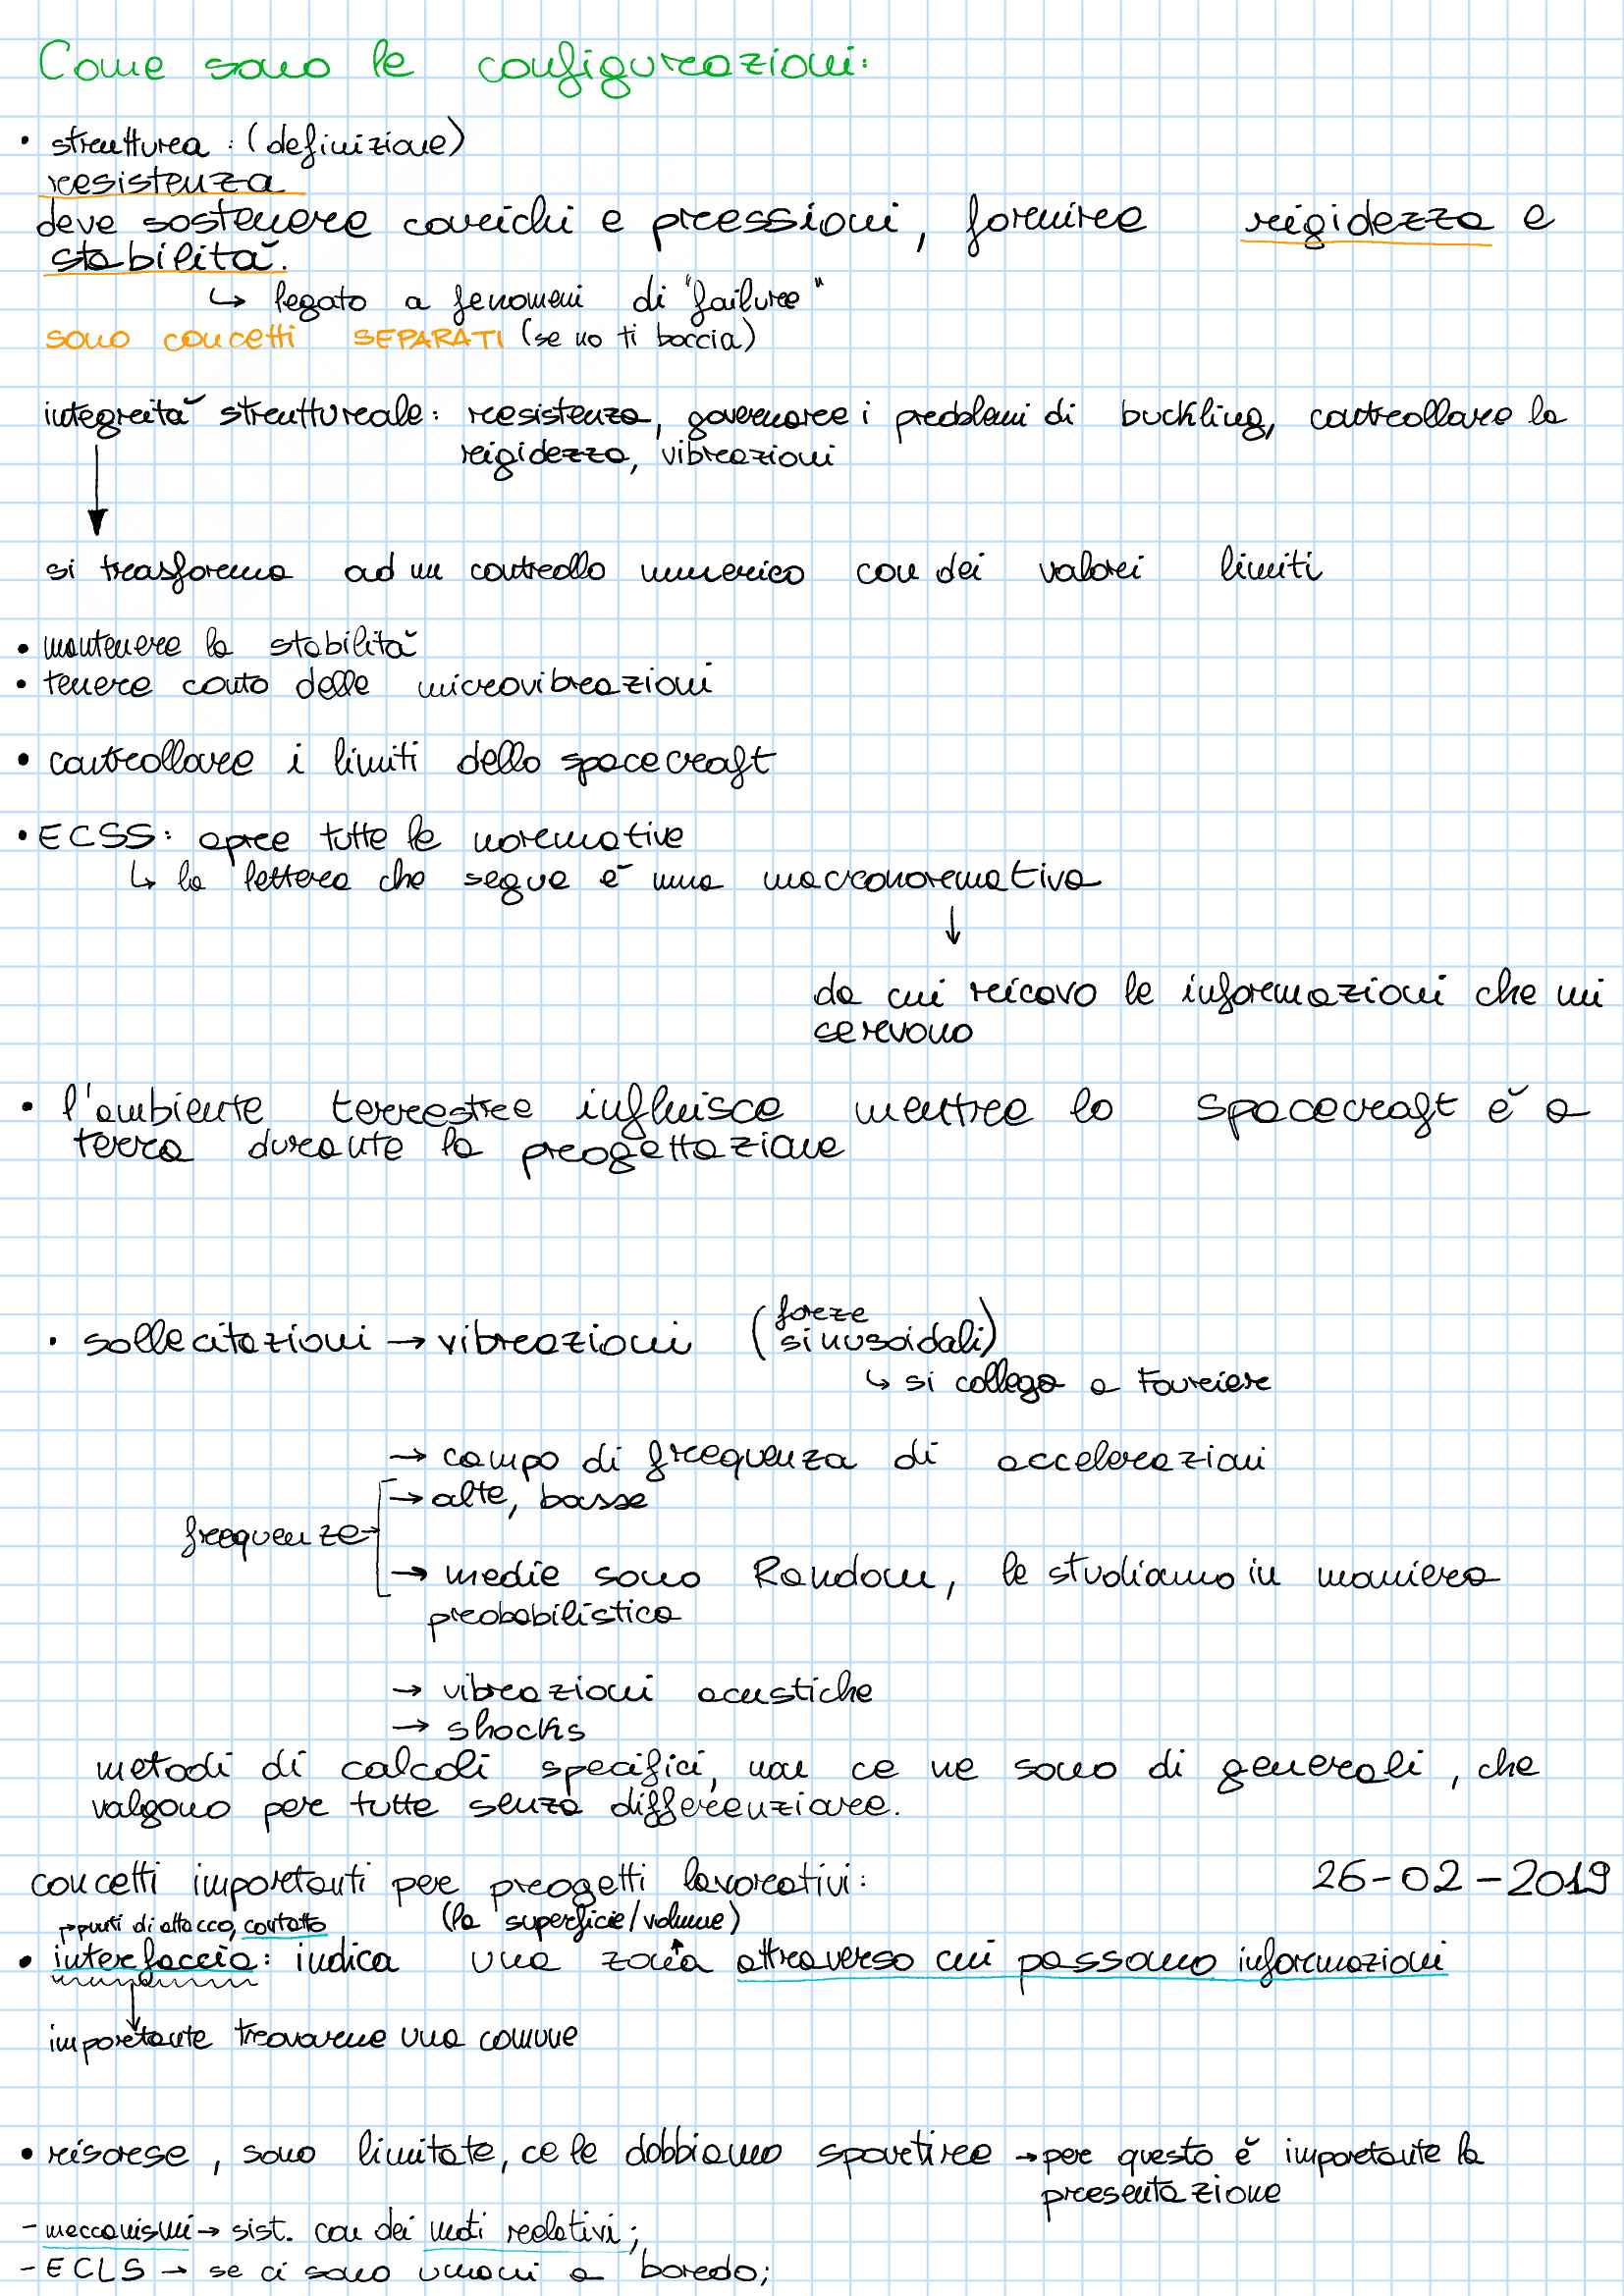 Come sono le configurazioni:
• struttura : (definizione)
resistenza
deve sostenere carichi e pressioni, fornire rigidezza e
stabilità.
↳ legato a fenomeni di "failure"
sono concetti SEPARATI (se no ti boccia)
integrità strutturale: resistenza, governare i problemi di buckling, controllare la
rigidezza, vibrazioni
si trasforma ad un controllo numerico con dei valori limiti
• mantenere la stabilità
• tenere conto delle microvibrazioni
• controllare i limiti dello spacecraft
• ECSS: apre tutte le normative
↳ la lettera che segue è una macronormativa
↓
da cui ricavo le informazioni che mi
servono
• l'ambiente terrestre influisce mentre lo spacecraft è a
terra durante la progettazione
• sollecitazioni → vibrazioni (forze
sinusoidali)
↳ si collega a Fourier
→ campo di frequenza di accelerazioni
→ alte, basse
frequenze
→ medie sono Random, le studiamo in maniera
probabilistica
→ vibrazioni acustiche
→ shocks
metodi di calcoli specifici, non ce ne sono di generali, che
valgono per tutte senza differenziare.
concetti importanti per progetti lavorativi: 26-02-2019
→ punti di attacco, contatto (la superficie/volume)
• interfaccia: indica una zona attraverso cui passano informazioni
importante trovarne una comune
• risorse, sono limitate, ce le dobbiamo spartire → per questo è importante la
presentazione
- meccanismi → sist. con dei moti relativi;
- ECLS → se ci sono umani a bordo;